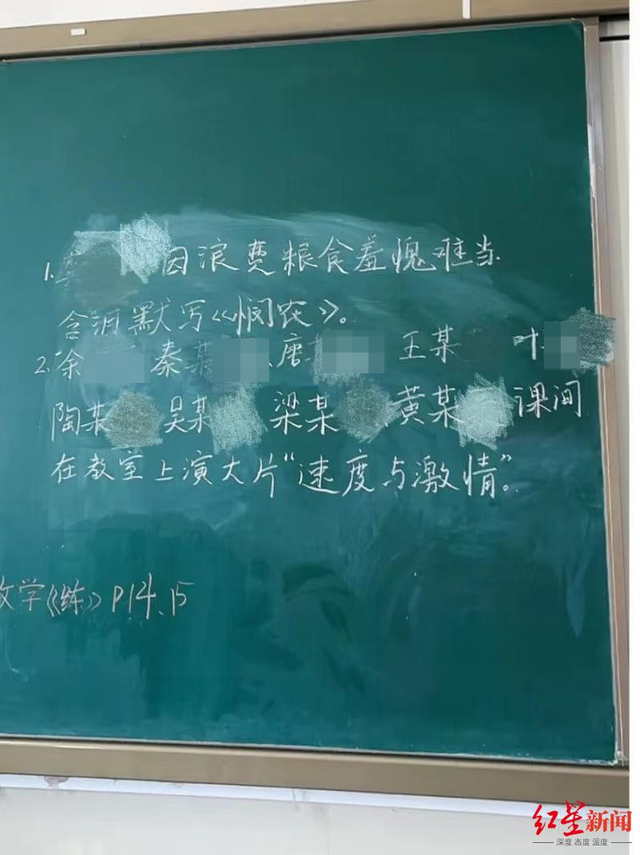 1. 因浪费粮食羞愧难当
含泪默写《悯农》。
2. 余 秦某 、唐 王某 叶
陶某 吴某 梁某 黄某 课间
在教室上演大片“速度与激情”。
数学《练》P14、15
红星新闻
深度 态度 温度